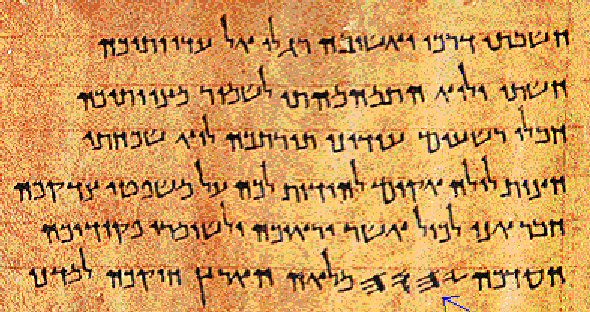 חשבתי דרכי ואשובה רגלי אל עדוותיכה
חשתי ולוא התמהמהתי לשמור מצוותיכה
חבלי רשעים עודוני תורתכה לוא שכחתי
חצות לילה אקום להודות לכה על משפטי צדקכה
חבר אני לכול אשר יראוכה ולשומרי פקודיכה
חסדכה 𐤉𐤄𐤅𐤄 מלאה הארץ חוקיכה למדני